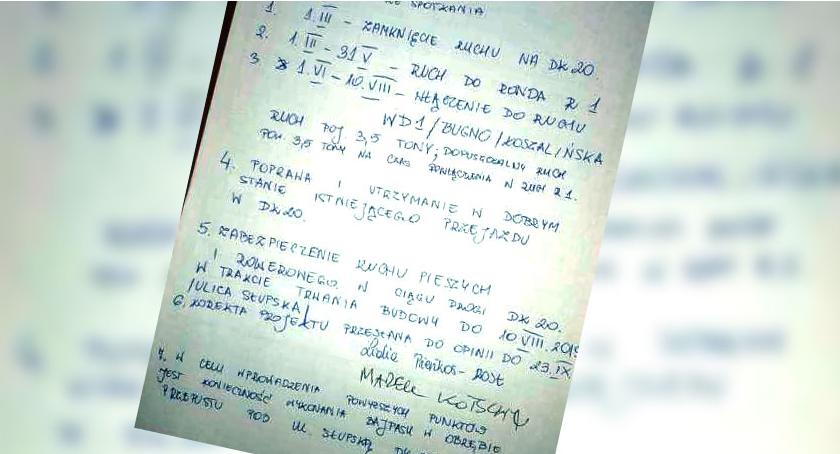 SPOTKANIA
1. 1.III – ZAMKNIĘCIE RUCHU NA DK 20.
2. 1.III – 31 V – RUCH DO RONDA R 1
3. 1.VI – 10.VIII – WŁĄCZENIE DO RUCHU
WD1/BUGNO/KOSZALIŃSKA
RUCH POJ. 3,5 TONY; DOPUSZCZALNY RUCH
POW. 3,5 TONY NA CZAS R 1.
4. POPRAWA I UTRZYMANIE W DOBRYM
STANIE ISTNIEJĄCEGO PRZEJAZDU
W DK 20.
5. ZABEZPIECZENIE RUCHU PIESZYCH
I ROWEROWEGO W CIĄGU DROGI DK 20.
W TRAKCIE TRWANIA BUDOWY DO 10 VIII. 2019
/ULICA SŁUPSKA/
6. KOREKTA PROJEKTU PRZESŁANA DO OPINII DO 23.IX
Lidia Pieńkos-Rost
MAREK KOTSCHY
7. W CELU WPROWADZENIA POWYŻSZYCH PUNKTÓW
JEST KONIECZNOŚĆ WYKONANIA BAJPASU W OBRĘBIE
PRZEPUSTU POD UL. SŁUPSKĄ